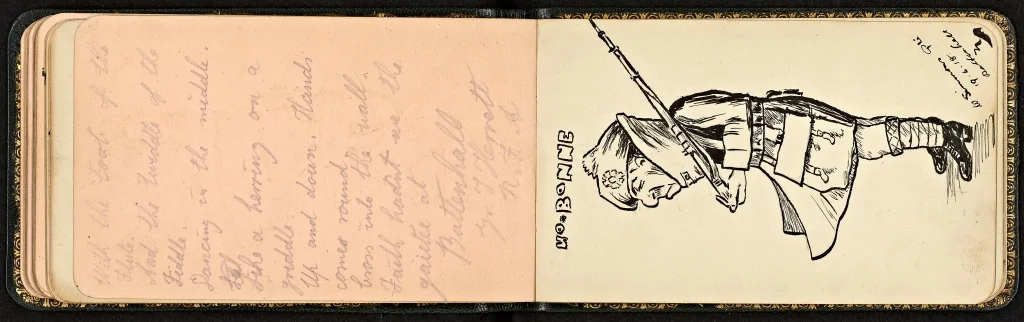 With the toot of the
flute.
And the twiddle of the
Fiddle.
Dancing in the middle.
Like a herring on a
griddle.
Up and down. Hands
comes round.
Cross into the wall
Faith hadnt we the
gaieties at
Battenhall
HO-BONNE
W Simmons Pte
19.6.18
Battenhall